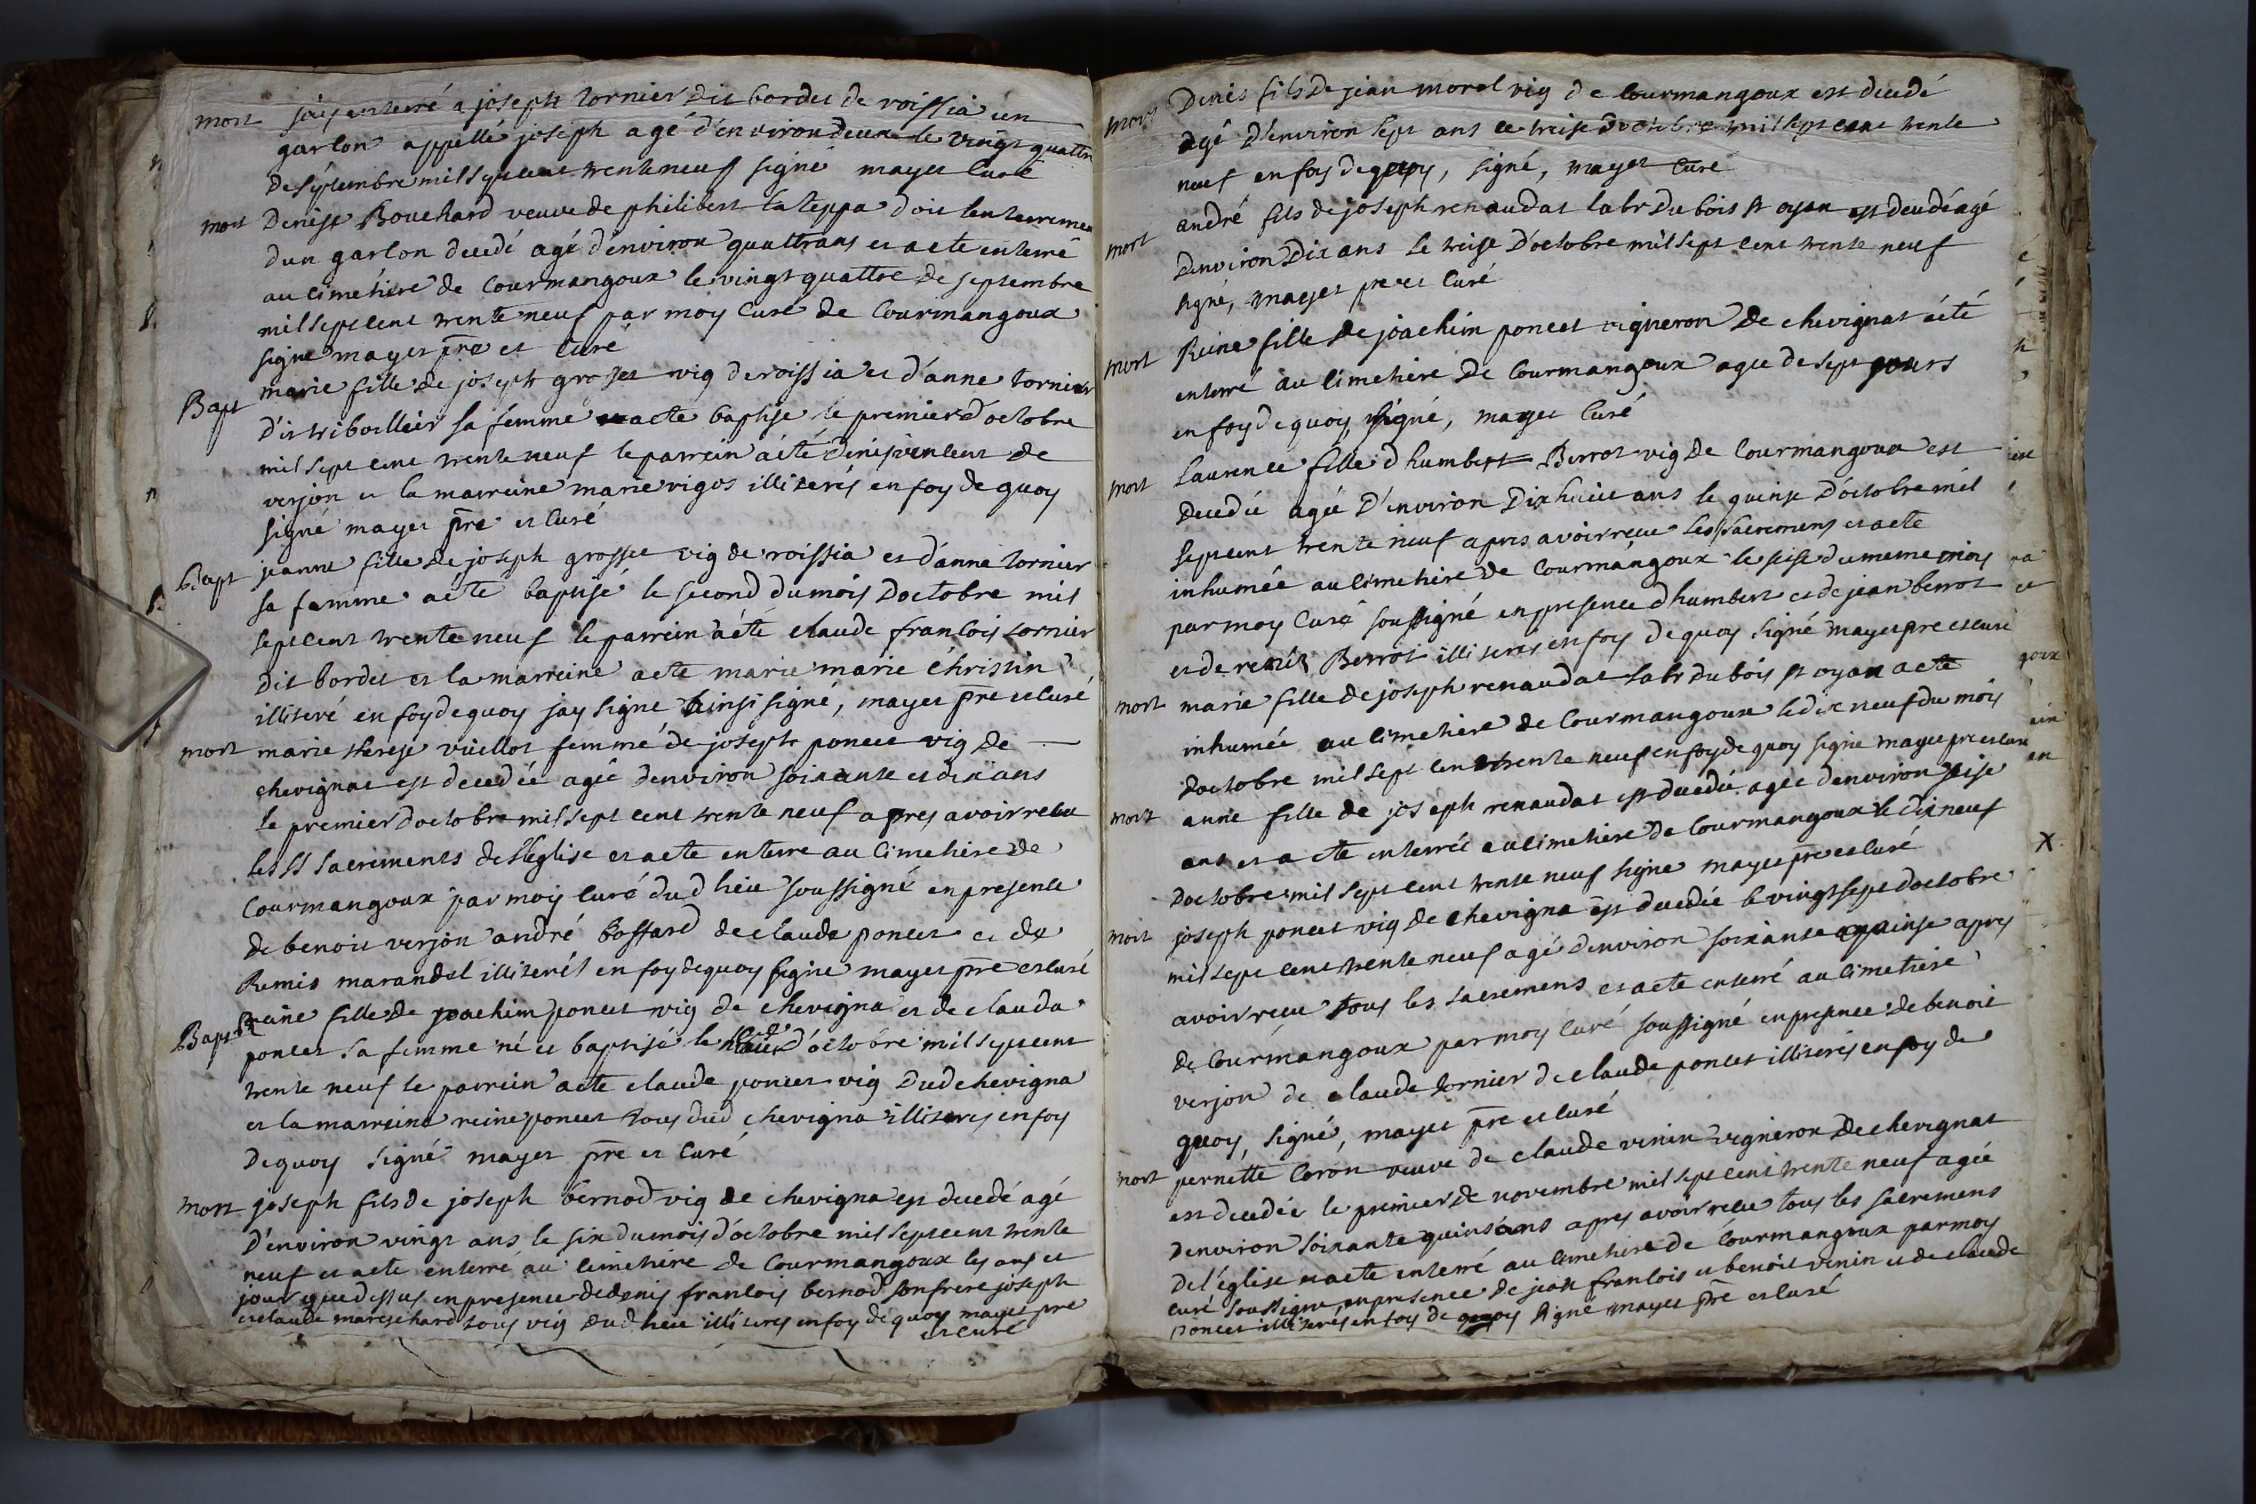 mort jay enterré a joseph tornier dit bordet de roissia un
garson appellé joseph agé d'environ deux le vingt quattre
de septembre mil sept cent trente neuf signé mayet curé
mort Denise Bouchard veuve de philibert la teppa doit lenterrement
dun garson decedé agé d'environ quattrans et a eté enterré
au cimetiere de Courmangoux le vingt quattre de septembre
mil sept cent trente neuf par moy curé de Courmangoux
signe mayet pre et curé
Bapt marie fille de joseph grosset vig de roissia et d'anne tornier
sa femme a eté baptisé le premier d'octobre
mil sept cent trente neuf le parrein a été denis vincent de
verjon et la marreine marie vigos illiterés en foy de quoy
signé mayet pre et curé
Bapt jeanne fille de joseph grosset vig de roissia et d'anne tornier
sa famme a eté baptisé le second du mois doctobre mil
sept cent trente neuf le parrein a été claude francois tornier
dit bordet et la marreine a ete marie marie christin
illiteré en foy de quoy jay signe ainsi signé, mayet pre et curé
mort marie therese vuillot femme de joseph poncet vig de
chevignat est decedée agée denviron soixante et dix ans
le premier doctobre mil sept cent trente neuf apres avoir recu
les SS sacrements de l'eglise et a eté enterre au cimetiere de
Courmangoux par moy curé dud lieu soussigné en presence
de benoit verjon andré bossard de claude poncet et de
Remis marandet illiterés en foy de quoy signe mayet pre et curé
Bapt Reine fille de joachim poncet vig de chevigna et de clauda
poncet sa femme né et baptisé le d'octobre mil sept cent
trente neuf le parrein a eté claude poncet vig dud chevigna
et la marreine reine poncet tous dud chevigna illiterés en foy
de quoy signé mayet pre et curé
mort joseph fils de joseph bernod vig de chevigna est decedé agé
d'environ vingt ans le six du mois d'octobre mil sept cent trente
neuf et a eté enterré au cimetiere de Courmangoux les ans et
jour que dessus en presence de denis francois bernod son frere joseph
et claude mareschard tous vig dud lieu illiterés en foy de quoy mayet pre
et curé
mort Denis fils de jean morel vig de Courmangoux est decedé
agé d'environ sept ans le treise doctobre mil sept cent trente
neuf en foy de quoy, signé, mayet curé
mort andré fils de joseph renaudat labr du bois st oyan est decedé agé
d'environ dix ans le treise d'octobre mil sept cent trente neuf
signé, mayet pre et curé
mort Reine fille de joachim poncet vigneron de chevignat a été
enterré au cimetiere de Courmangoux agée de sept jours
en foy de quoy signé, mayet curé
mort Laurence fille d humbert Berrot vig de Courmangoux est
decedée agée d'environ dix huit ans le quinse d'octobre mil
sept cent trente neuf apres avoir receu les sacremens et a eté
inhumée au cimetiere de Courmangoux le seise du meme mois
par moy curé soussigné en presence d humbert et de jean berrot
et de remis Berrot illiterés en foy de quoy signé mayet pre et curé
mort marie fille de joseph renaudat labr du bois st oyan a eté
inhumée au cimetiere de Courmangoux le dix neuf du mois
doctobre mil sept cent trente neuf en foy de quoy signe mayet pre et curé
mort anne fille de joseph renaudat est decedée agée denviron seise
ans et a eté enterrée au cimetiere de Courmangoux le dix neuf
doctobre mil sept cent trente neuf signe mayet pre et curé
mort joseph poncet vig de chevigna est decedée le vingt sept doctobre
mil sept cent trente neuf agé denviron soixante quinse apres
avoir receu tous les sacremens et a eté enterré au cimetiere
de Courmangoux par moy curé soussigné en presence de benoit
verjon de claude tornier de claude poncet illiterés en foy de
quoy, signé, mayet pre et curé
mort pernette Coron veuve de claude vinin vigneron de chevignat
est decedée le premier de novembre mil sept cent trente neuf agée
denviron soixante quins ans apres avoir receu tous les sacremens
de l'église et a eté enterré au cimetiere de Courmangoux par moy
curé soussigné, en presence de jean francois et benoit vinin et de claude
poncet illiterés en foy de quoy signe mayet pre et curé
X